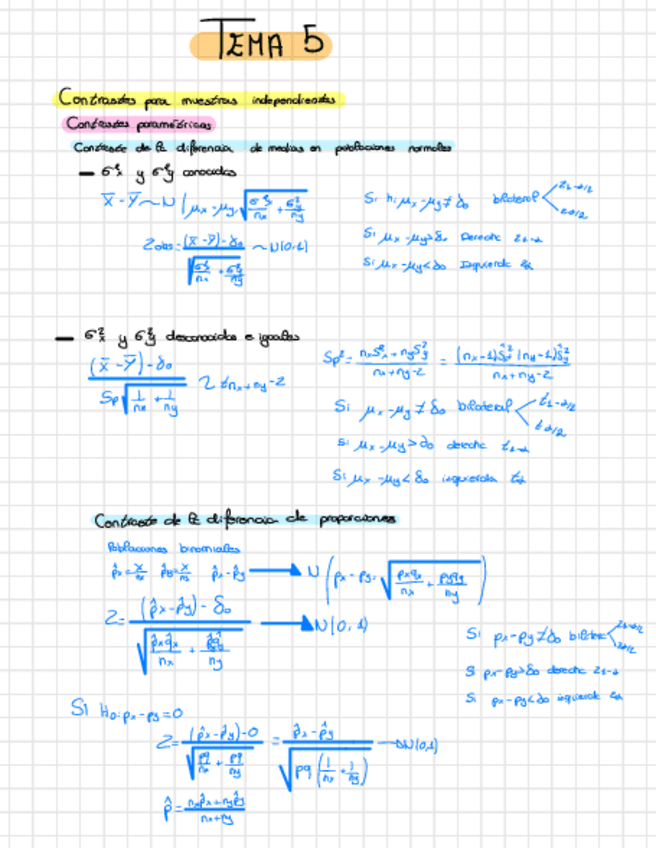 TEMA 5
Contrastes para muestras independientes
Contrastes paramétricos
Contraste de la diferencia de medias en poblaciones normales
— σ²x y σ²y conocidas
X̄ - Ȳ ~ N(μx - μy, √(σ²x/nx + σ²y/ny))
Zobs = ((X̄ - Ȳ) - δ0) / √(σ²x/nx + σ²y/ny) ~ N(0,1)
Si H1: μx - μy ≠ δ0 bilateral < z1-α/2 zα/2
Si μx - μy > δ0 Derecha z1-α
Si μx - μy < δ0 Izquierda zα
— σ²x y σ²y desconocidas e iguales
((X̄ - Ȳ) - δ0) / (Sp √(1/nx + 1/ny)) ~ tnx+ny-2
Sp² = (nxS²x + nyS²y) / (nx+ny-2) = ((nx-1)Ŝ²x + (ny-1)Ŝ²y) / (nx+ny-2)
Si μx - μy ≠ δ0 bilateral < t1-α/2 tα/2
Si μx - μy > δ0 derecha t1-α
Si μx - μy < δ0 izquierda tα
Contraste de la diferencia de proporciones
Poblaciones binomiales
p̂x - p̂y → N(px - py, √(pxqx/nx + pyqy/ny))
Z = ((p̂x - p̂y) - δ0) / √(p̂xq̂x/nx + p̂q̂/ny) → N(0,1)
Si px - py ≠ δ0 bilateral < z1-α/2 zα/2
Si px - py > δ0 derecha z1-α
Si px - py < δ0 izquierda zα
Si H0: px - py = 0
Z = ((p̂x - p̂y) - 0) / √(pq/nx + pq/ny) = (p̂x - p̂y) / √(pq(1/nx + 1/ny)) → N(0,1)
p̂ = (nxp̂x + nyp̂y) / (nx+ny)